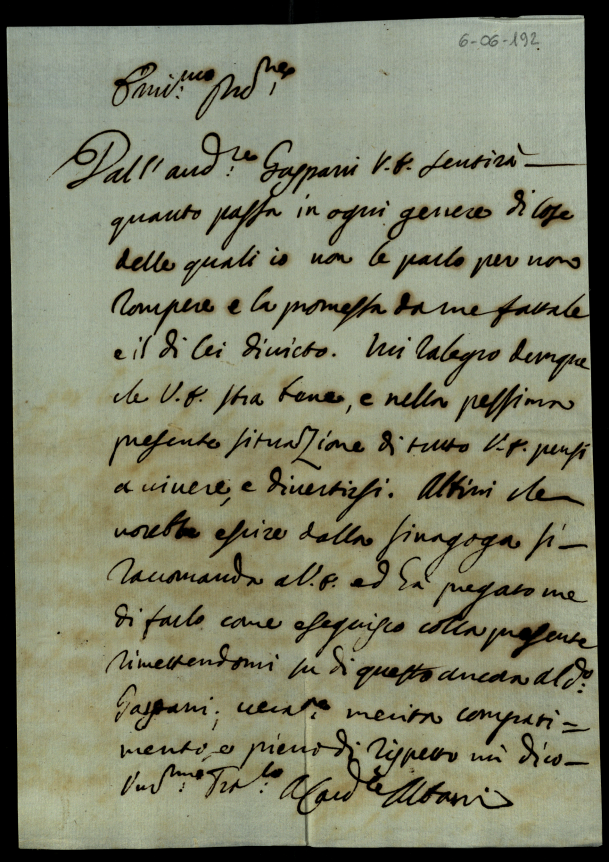 6-06-192
Emin.mo
Dall' aud.re Gaspari V.E. sentirà
quanto passa in ogni genere di cose
delle quali io non le parlo per non
rompere e la promessa da me fattale
e il di lei divieto. Mi ralegro dunque
che V.E. stia bene, e nella pessima
presente situazione di tutto V.E. pensi
a vivere, e divertirsi. Albini che
vorebbe escire dalla sinagoga si
raccomanda a V.E. ed ha pregato me
di farlo come eseguisco colla presente
rimettendomi su di questo ancora al d.o
Gaspari; merita compati=
mento, e pieno di rispetto mi dico
A Card.le Albani